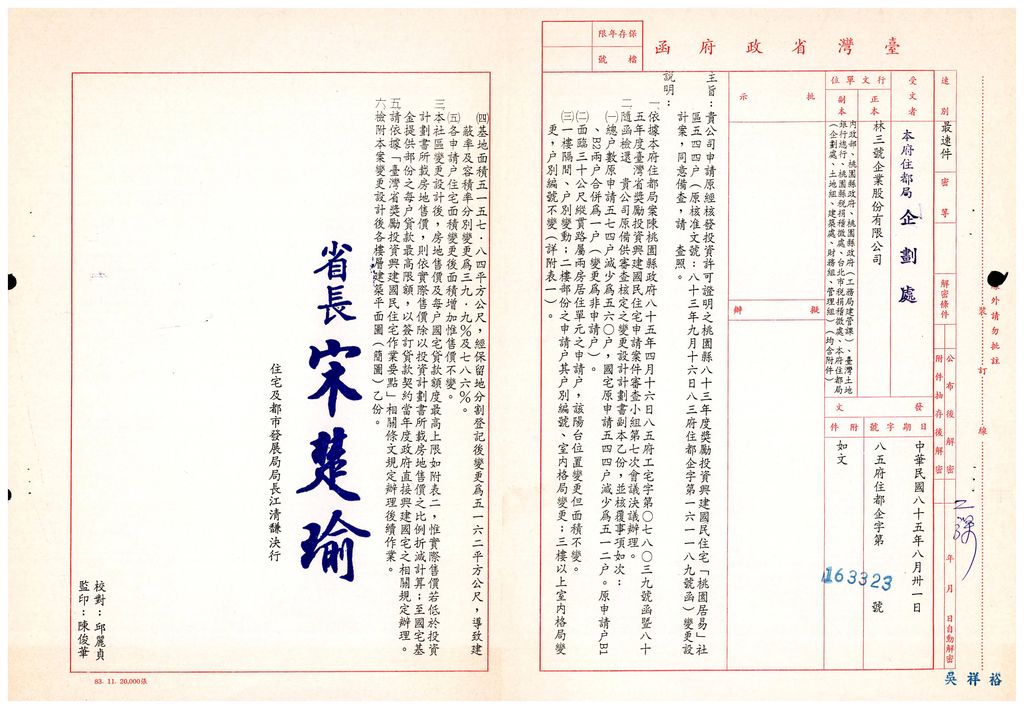 臺灣省政府函
保存年限
檔號
速別
最速件
密等
解密條件
公布後解密
附件抽存後解密
年月日自動解密
裝訂線
線外請勿批註
受文者
本府住都局企劃處
行文單位
正本
林三號企業股份有限公司
副本
內政部、桃園縣政府、桃園縣政府(工務局建管課)、臺灣土地
銀行總行、桃園縣稅捐稽徵處、台北市稅捐稽徵處、本府住都局
(企劃處、土地組、建築處、財務組、管理組)(均含附件)
發文
日期
中華民國八十五年八月卅一日
字號
八五府住都企字第163323號
附件
如文
批示
擬辦
主旨：貴公司申請原經核發投資許可證明之桃園縣八十三年度獎勵投資興建國民住宅「桃園居易」社
區五四四戶(原核准文號：八十三年九月十六日八三府住都企字第一六一一八九號函)變更設
計案，同意備查，請　查照。
說明：
一、依據本府住都局案陳桃園縣政府八十五年四月十六日八五府工宅字第○七八○三九號函暨八十
五年度臺灣省獎勵投資興建國民住宅申請案件審查小組第七次會議決議辦理。
二、隨函檢還　貴公司原備供審查核定之變更設計計劃書副本乙份，並核覆事項如次：
㈠總戶數原申請五七四戶減少為五六○戶，國宅原申請五四四戶減少為五一二戶。原申請戶B1
、B2兩戶合併為一戶(變更為非申請戶)。
㈡面臨三十公尺縱貫路屬兩房居住單元之申請戶，該陽台位置變更但面積不變。
㈢一樓隔間、戶別變動；二樓部份之申請戶其戶別編號、室內格局變更；三樓以上室內格局變
更，戶別編號不變(詳附表一)。
㈣基地面積五一五七．八四平方公尺，經保留地分割登記後變更為五一六二平方公尺，導致建
蔽率及容積率分別變更為三九．九%及七八六%。
㈤各申請戶住宅面積變更後面積增加惟售價不變。
三、本社區變更設計後，房地售價及每戶國宅貸款額度最高上限如附表二，惟實際售價若低於投資
計劃書所載房地售價，則依實際售價除以投資計劃書所載房地售價之比例折減計算；至國宅基
金提供部份之每戶貸款最高限額，以簽訂貸款契約當年度政府直接興建國宅之相關規定辦理。
五、請依據「臺灣省獎勵投資興建國民住宅作業要點」相關條文規定辦理後續作業。
六、檢附本案變更設計後各樓層建築平面圖(簡圖)乙份。
省長宋楚瑜
住宅及都市發展局局長江清馦決行
校對：邱麗貞
監印：陳俊華
83. 11. 20,000張
吳祥裕